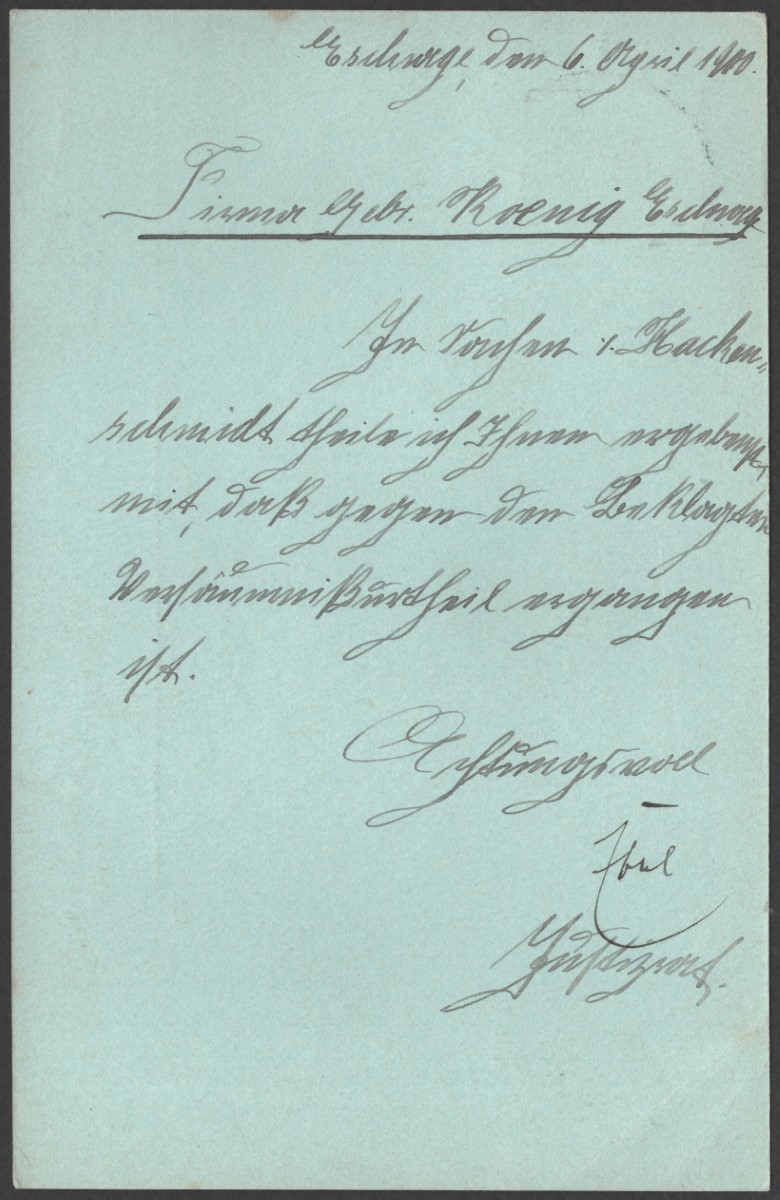 Eschwege, den 6. April 1900.
Firma Gebr. Koenig Eschwege
In Sachen ./. Hacken-
schmidt theile ich Ihnen ergebenst
mit, daß gegen den Beklagten
Versäumnißurtheil ergangen
ist.
Achtungsvoll
Justizrat.